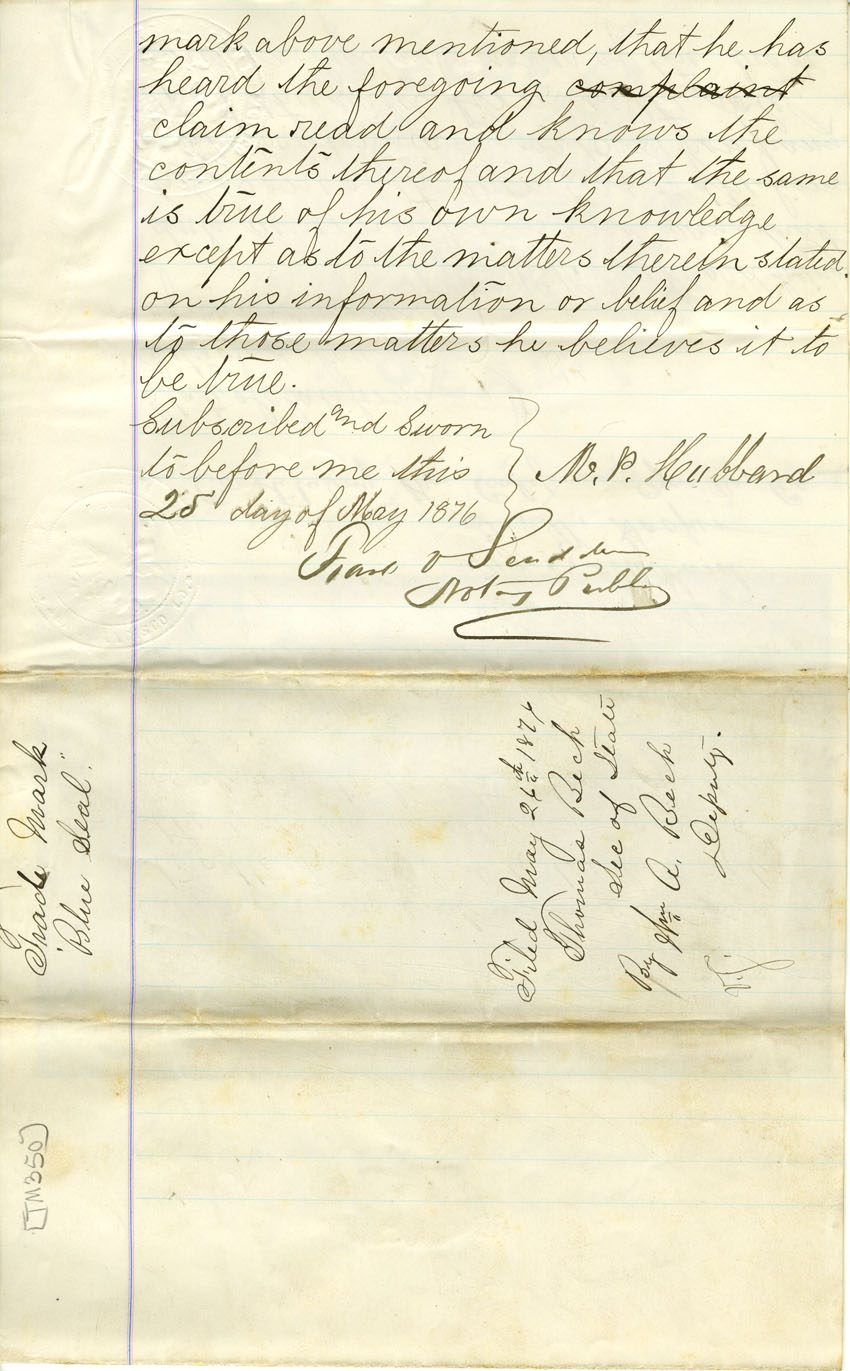 mark above mentioned, that he has
heard the foregoing complaint
claim read and knows the
contents thereof and that the same
is true of his own knowledge
except as to the matters therein stated
on his information or belief and as
to those matters he believes it to
be true.
Subscribed and Sworn
to before me this
25 day of May 1876
M. P. Hubbard
Notary Public
Trade Mark
"Blue Seal."
Filed May 26th 1876
Thomas Beck
Sec of State
By Wm A. Beck
Deputy.
TM350